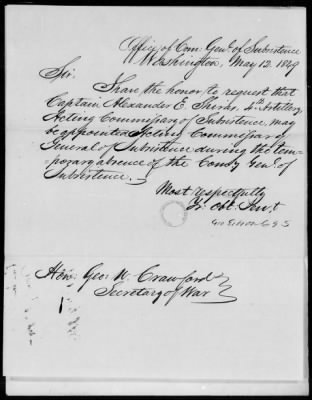 Office of Com. Genl. of Subsistence
Washington, May 12. 1849
Sir.
I have the honor to request that
Captain Alexander E. Shiras, 4th Artillery
Acting Commissary of Subsistence, may
be appointed Acting Commissary
General of Subsistence during the tem-
porary absence of the Comsy Genl. of
Subsistence.
Most respectfully
Yr. Obt. Servt
Geo Gibson C G S
Hon: Geo. W. Crawford
Secretary of War